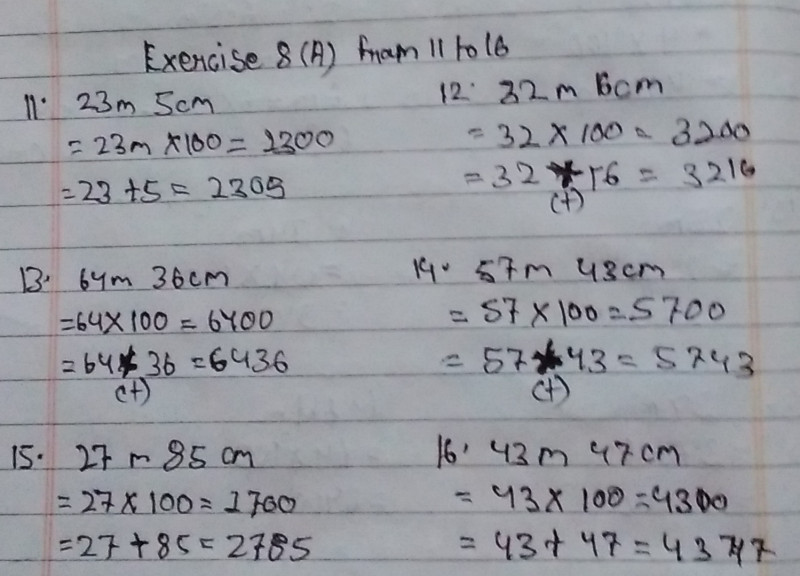 Exercise 8 (A) from 11 to 16
11. 23m 5cm
= 23m × 100 = 2300
= 23 + 5 = 2305
12. 32m 16cm
= 32 × 100 = 3200
= 32 + 16 = 3216
(+)
13. 64m 36cm
= 64 × 100 = 6400
= 64 × 36 = 6436
(+)
14. 57m 43cm
= 57 × 100 = 5700
= 57 × 43 = 5743
(+)
15. 27 m 85 cm
= 27 × 100 = 2700
= 27 + 85 = 2785
16. 43m 47cm
= 43 × 100 = 4300
= 43 + 47 = 4347